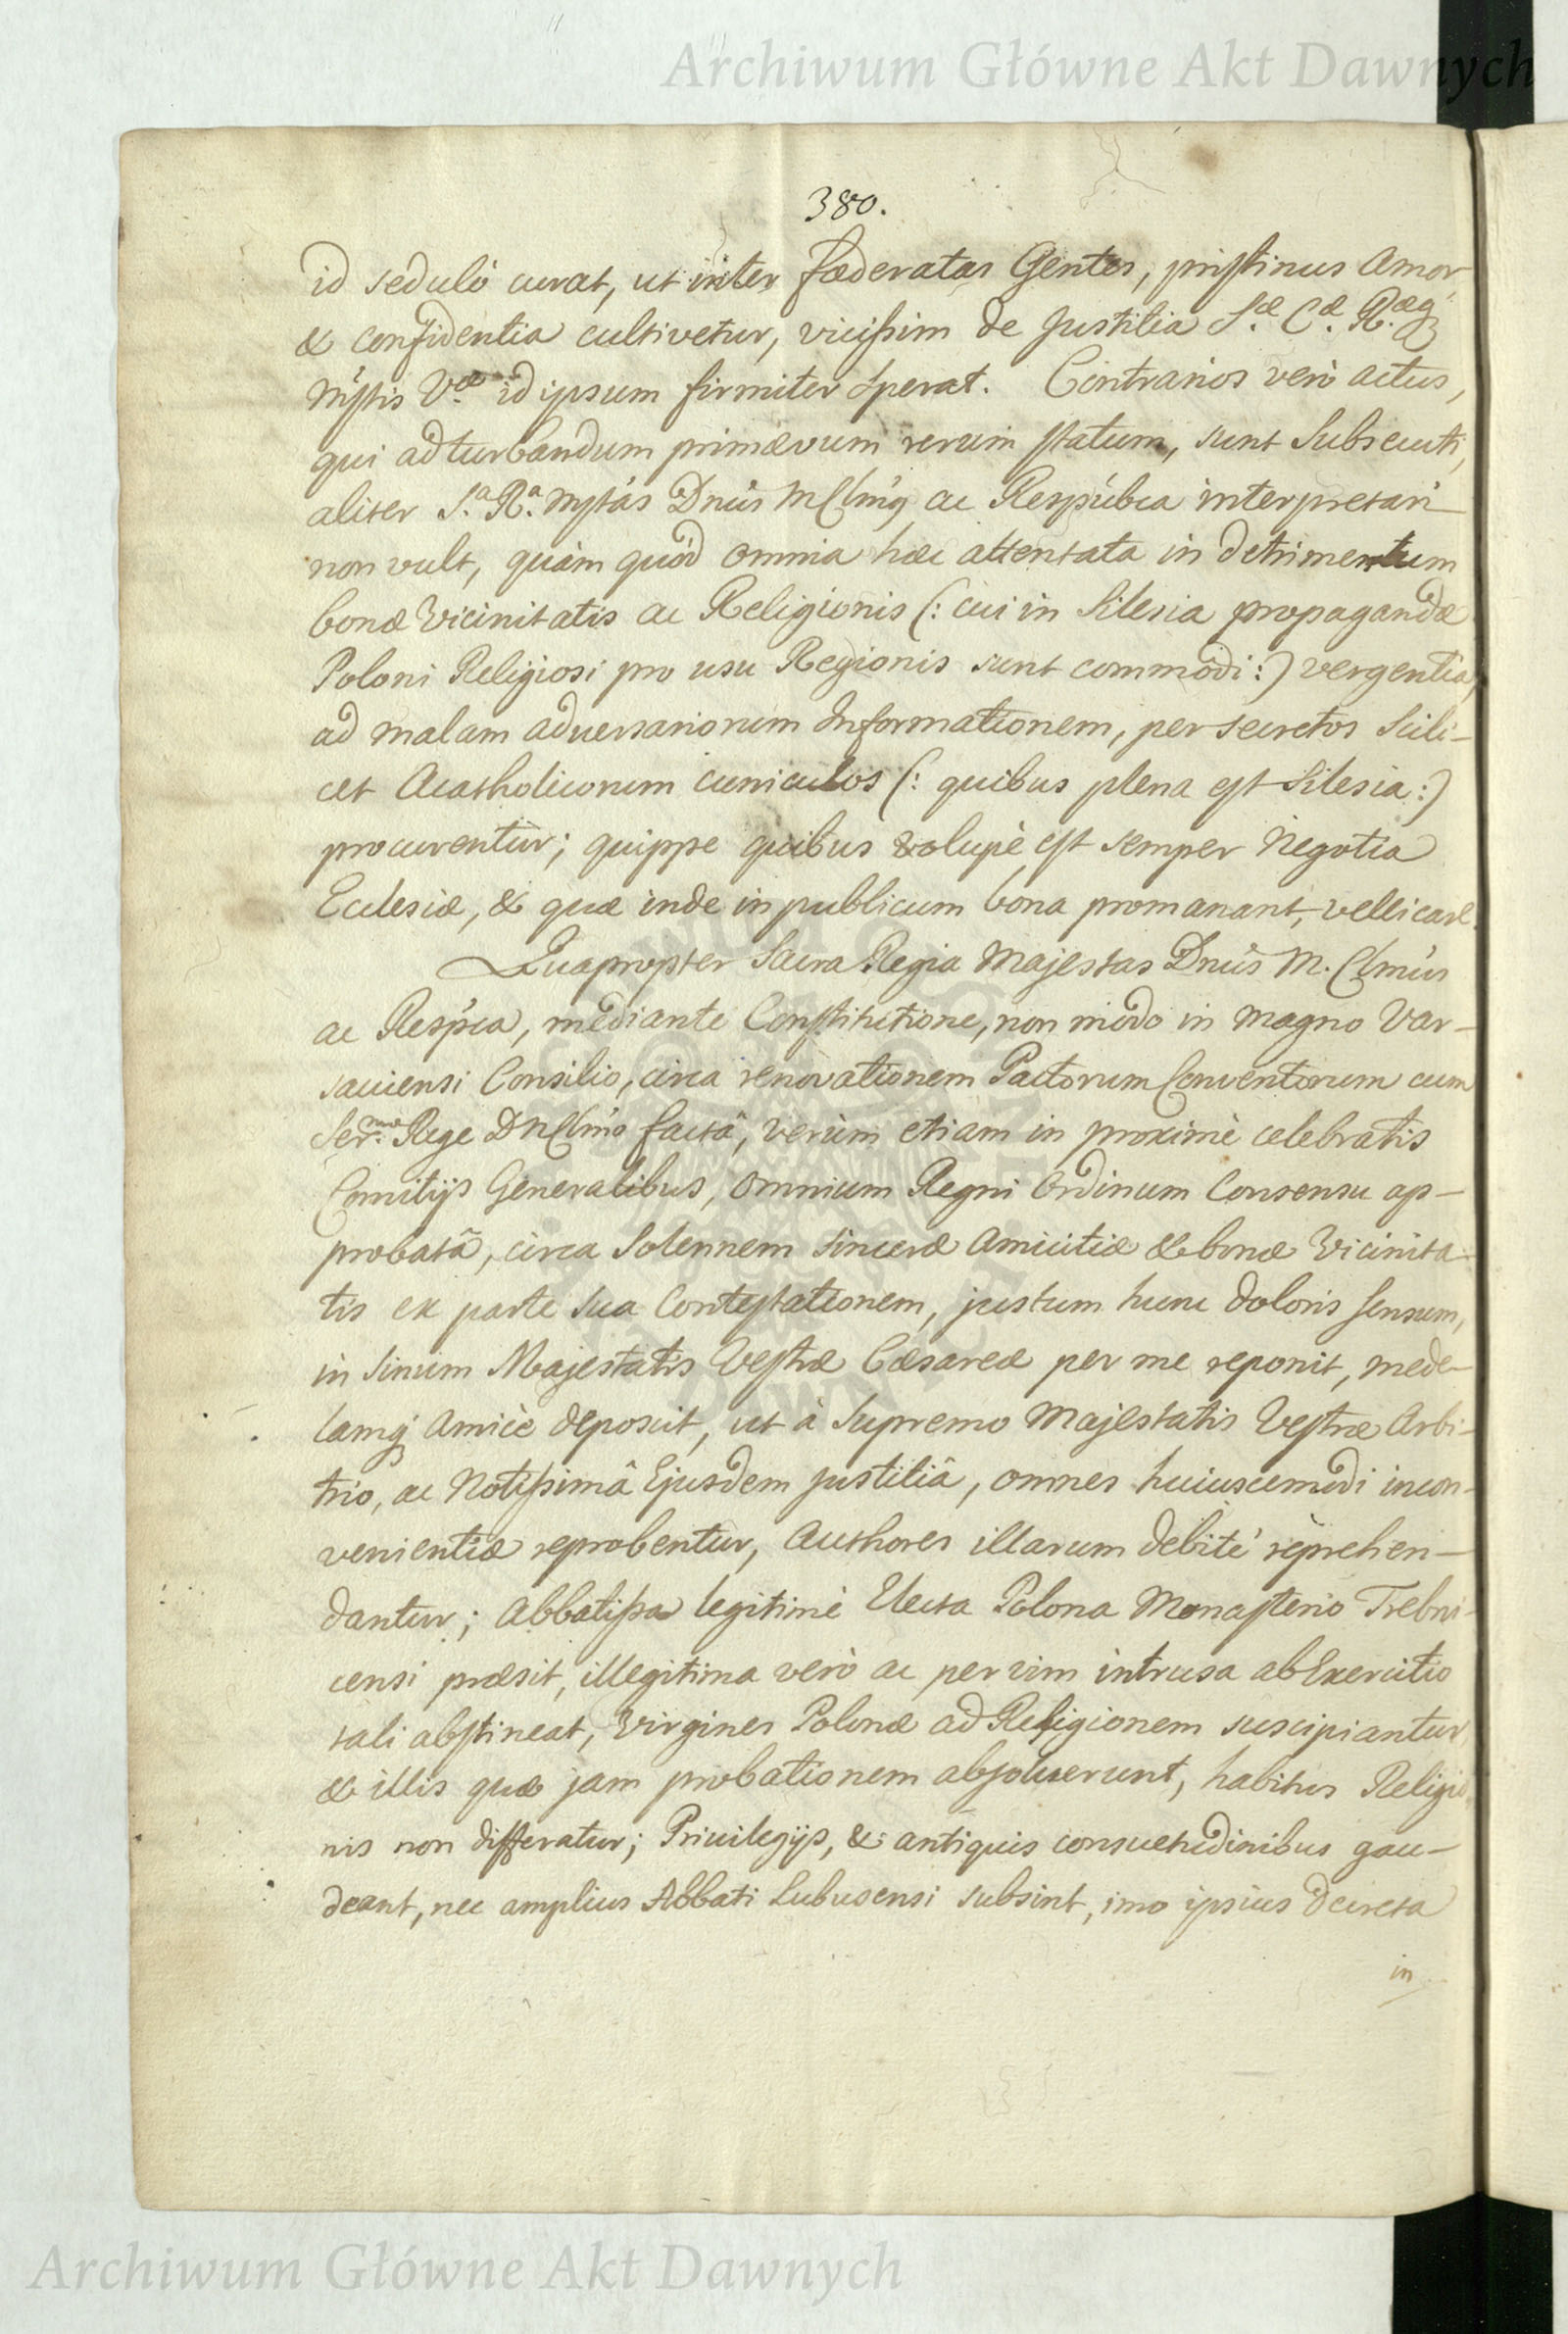 Archiwum Główne Akt Dawnych
380.
id sedulò curat, ut inter fœderatas Gentes, pristinus Amor
& confidentia cultivetur, vicissim de Justitia S.æ C.æ R.æq;
Mᵗtis V.æ id ipsum firmiter sperat. Contrarios verò actus,
qui ad turbandum primævum rerum statum, sunt subsecuti,
aliter S.a R.a Mᵗtas Dnus M Clmꝰ ac Respublca interpretari
non vult, quàm quòd omnia hæc attentata in detrimentum
bonæ Vicinitatis ac Religionis (: cui in Silesia propagandæ
Poloni Religiosi pro usu Regionis sunt commodi :) vergentia,
ad malam adversariorum Informationem, per secretos Scili-
cet Acatholicorum cuniculos (: quibus plena est Silesia :)
procurentur; quippe quibus volupè est semper Negotia
Ecclesiæ, & quæ inde in publicum bona promanant, vellicare.
Quapropter Sacra Regia Majestas Dnus M. Clmus
ac Respca, mediante Constitutione, non modo in magno Var-
saviensi Consilio, circa renovationem Pactorum Conventorum cum
Ser.mo Rege D n Clmo factâ, verùm etiam in proximè celebratis
Comitijs Generalibus, omnium Regni Ordinum Consensu ap-
probatâ, circa Solennem sinceræ Amicitiæ & bonæ Vicinita-
tis ex parte sua Contestationem, justum hunc doloris sensum,
in Sinum Majestatis Vestræ Cæsareæ per me reponit, mede-
lamq; Amicè deposcit, ut à Supremo Majestatis Vestræ Arbi-
trio, ac Notissimâ Ejusdem justitiâ, omnes huiuscemodi incon-
venientiæ reprobentur, Authores illarum debitè reprehen-
dantur; Abbatissa legitimè Electa Polona Monasterio Trebni-
censi præsit, illegitima verò ac per vim intrusa ab Exercitio
tali abstineat, Virgines Polonæ ad Religionem suscipiantur
& illis quæ jam probationem absoluerunt, habitus Religio-
nis non differatur; Priuilegijs, & antiquis consuetudinibus gau-
deant, nec amplius Abbati Lubusensi subsint, imo ipsius decreta
in
Archiwum Główne Akt Dawnych